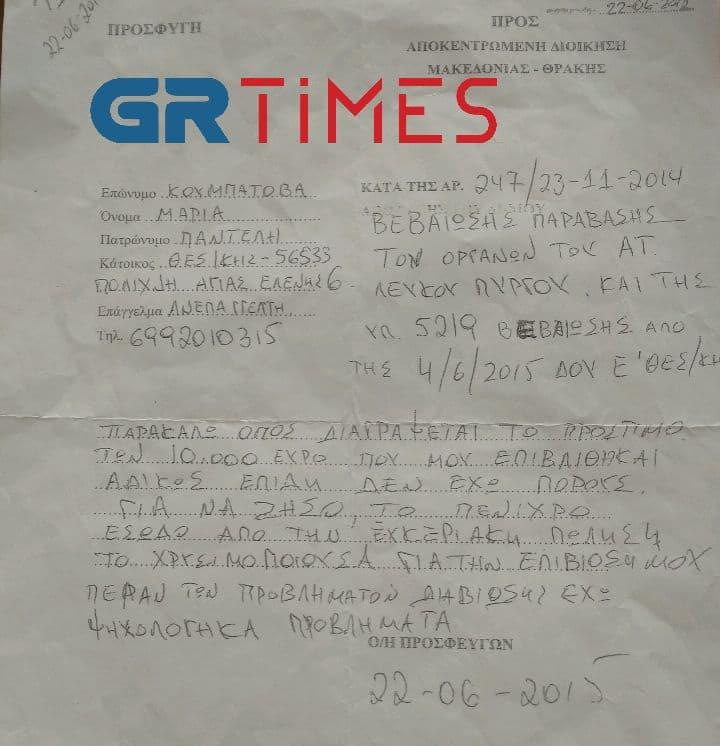 22-06-201
22-06-201
ΠΡΟΣΦΥΓΗ
ΠΡΟΣ
ΑΠΟΚΕΝΤΡΩΜΕΝΗ ΔΙΟΙΚΗΣΗ
ΜΑΚΕΔΟΝΙΑΣ - ΘΡΑΚΗΣ
GRTiMES
Επώνυμο ΚΟΥΜΠΑΤΟΒΑ
Όνομα ΜΑΡΙΑ
Πατρώνυμο ΠΑΝΤΕΛΗ
Κάτοικος ΘΕΣ/ΚΗΣ-56533
ΠΟΛΙΧΝΗ ΑΓΙΑΣ ΕΛΕΝΗΣ 6
Επάγγελμα ΑΝΕΠΑΓΓΕΛΤΗ
Τηλ. 6992010315
ΚΑΤΑ ΤΗΣ ΑΡ. 247/23-11-2014
ΒΕΒΑΙΩΣΗΣ ΠΑΡΑΒΑΣΗΣ
ΤΩΝ ΟΡΓΑΝΩΝ ΤΟΥ ΑΤ.
ΛΕΥΚΟΥ ΠΥΡΓΟΥ. ΚΑΙ ΤΗΣ
ΥΠ. 5219 ΒΕΒΑΙΩΣΗΣ ΑΠΟ
ΤΗΣ 4/6/2015 ΔΟΥ Ε' ΘΕΣ/ΚΗ
ΠΑΡΑΚΑΛΩ ΟΠΟΣ ΔΙΑΓΡΑΨΕΤΑΙ ΤΟ ΠΡΟΣΤΙΜΟ
ΤΩΝ 10.000 ΕΥΡΟ ΠΟΥ ΜΟΥ ΕΠΙΒΛΙΘΗΚΑΙ
ΑΔΙΚΩΣ ΕΠΙΔΗ ΔΕΝ ΕΧΩ ΠΟΡΟΥΣ
ΓΙΑ ΝΑ ΖΗΣΩ, ΤΟ ΠΕΝΙΧΡΟ
ΕΣΩΔΟ ΑΠΟ ΤΗΝ ΕΥΚΕΡΙΑΚΗ ΠΩΛΗΣΗ
ΤΟ ΧΡΗΣΙΜΟΠΟΙΟΥΣΑ ΓΙΑ ΤΗΝ ΕΠΙΒΙΟΣΗ ΜΟΥ
ΠΕΡΑΝ ΤΩΝ ΠΡΟΒΛΗΜΑΤΩΝ ΔΙΑΒΙΩΣΗΣ ΕΧΩ
ΨΗΧΟΛΟΓΗΚΑ ΠΡΟΒΛΗΜΑΤΑ
Ο/Η ΠΡΟΣΦΕΥΓΩΝ
22-06-2015